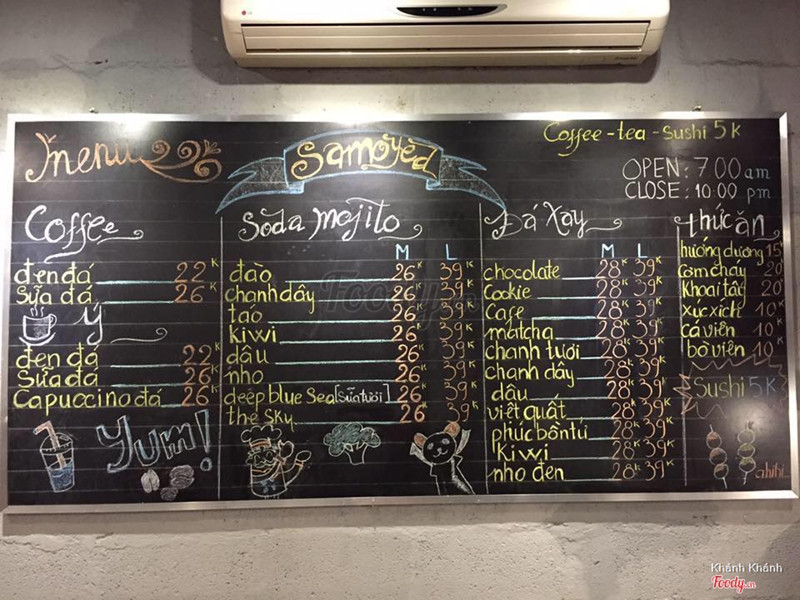 menu
Samoyed
Coffee - tea - Sushi 5K
OPEN: 7.00 am
CLOSE: 10:00 pm
Coffee
đen đá 22K
Sữa đá 26K
Ý
đen đá 22K
Sữa đá 26K
Capuccino đá 26K
Yum!
Soda mojito
M L
đào 26K 39K
chanh dây 26K 39K
táo 26K 39K
kiwi 26K 39K
dâu 26K 39K
nho 26K 39K
deep blue Sea [Sữa tươi] 26K 39K
the sky 26K 39K
Đá Xay
M L
chocolate 28K 39K
Cookie 28K 39K
Cafe 28K 39K
matcha 28K 39K
chanh tươi 28K 39K
chanh dây 28K 39K
dâu 28K 39K
việt quất 28K 39K
phúc bồn tử 28K 39K
Kiwi 28K 39K
nho đen 28K 39K
thức ăn
hướng dương 15K
Cơm cháy 20K
Khoai tây 20K
xúc xích 10K
cá viên 10K
bò viên 10K
Sushi 5K
ahihi
Khánh Khánh
Foody.vn